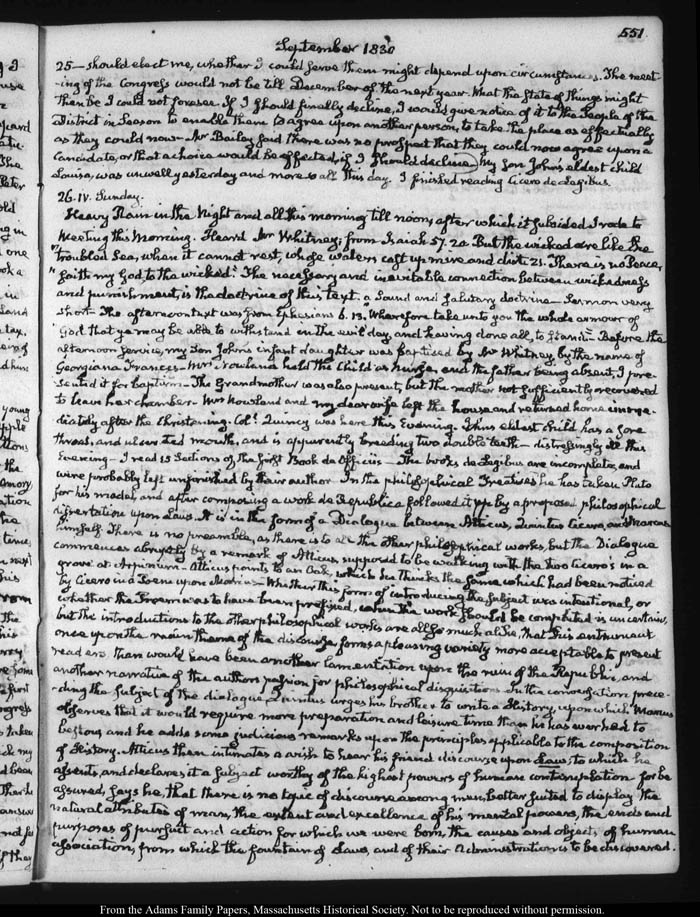 551.
September 1830
25— should elect me, whether I could serve them might depend upon circumstances. The meet-
-ing of the Congress would not be till December of the next year. What the state of things might
then be I could not foresee. If I should finally decline, I would give notice of it to the People of the
District in season to enable them to agree upon another person, to take the place as effectually
as they could now— Mr Bailey said there was no prospect that they could now agree upon a
Candidate, or that a choice would be effected, if I should decline. My Son John's eldest child
Louisa, was unwell yesterday and more so all this day. I finished reading Cicero de Legibus.
26. IV. Sunday.
Heavy Rain in the Night and all this morning till noon, after which it subsided I rode to
Meeting this Morning. Heard Mr Whitney, from Isaiah 57. 20. But the wicked are like the
troubled Sea, when it cannot rest, whose waters cast up mire and dirt. 21. There is no Peace,
saith my God, to the wicked." The necessary and inevitable connection between wickedness
and punishment, is the doctrine of this text. a sound and salutary doctrine— Sermon very
short— The afternoon text was from Ephesians 6. 13. Wherefore take unto you the whole armour of
God that ye may be able to withstand in the evil day, and having done all, to stand— Before the
afternoon service, my Son John's infant daughter was baptised by Mr Whitney, by the name of
Georgiana Frances— Mrs Nowland held the Child as Nurse, and the father being absent, I pre-
sented it for baptism— The Grandmother was also present, but the mother not sufficiently recovered
to leave her chamber. Mrs Nowland and my dear wife left the house and returned home imme-
diately after the Christening. Col. Quincy was here this Evening. John's eldest Child has a sore
throat, and ulcerated mouth, and is apparently breeding two double teeth— distressingly ill this
Evening— I read 15 Sections of the first Book de Officiis— The books de Legibus are incomplete, and
were probably left unfinished by their author. In the philosophical Treatises he has taken Plato
for his model, and after composing a work de Republica followed it up by a proposed philosophical
dissertation upon Laws. It is in the form of a Dialogue between Atticus, Quintus Cicero, and Marcus
himself. There is no preamble, as there is to all the other philosophical works, but the Dialogue
commences abruptly by a remark of Atticus, supposed to be walking with the two Cicero's in a
grove at Arpinum— Atticus points to an Oak, which he thinks the same which had been noticed
by Cicero in a Poem upon Marius— Whether this form of introducing the subject was intentional, or
whether the Proem was to have been prefixed, when the work should be completed is uncertain,
but the introductions to the other philosophical works are all so much alike, that this entrance at
once upon the main theme of the discourse forms a pleasing variety more acceptable to present
readers than would have been another lamentation upon the ruin of the Republic, and
another narrative of the author's passion for philosophical disquisitions. In the conversation prece-
-ding the subject of the dialogue Quintus urges his brother to write a History, upon which Marcus
observes that it would require more preparation and leisure time than he has ever had to
bestow, and he adds some judicious remarks upon the principles applicable to the composition
of History. Atticus then intimates a wish to hear his friend discourse upon Laws, to which he
assents, and declares it a subject worthy of the highest powers of human contemplation— for be
assured, says he, that there is no topic of discourse among men, better suited to display the
natural attributes of man, the extent and excellence of his mental powers, the ends and
purposes of pursuit and action for which we were born, the causes and objects of human
association, from which the fountain of Laws, and of their administration is to be discovered.
From the Adams Family Papers, Massachusetts Historical Society. Not to be reproduced without permission.